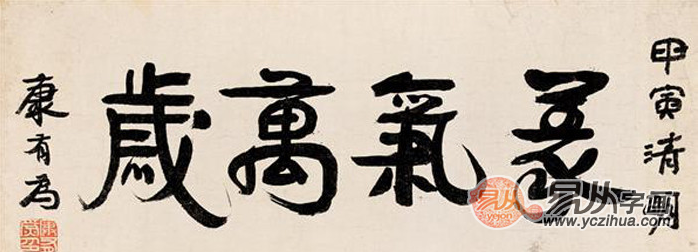 甲寅清明
氣萬歲
康有為
易从字画
www.yczihua.com